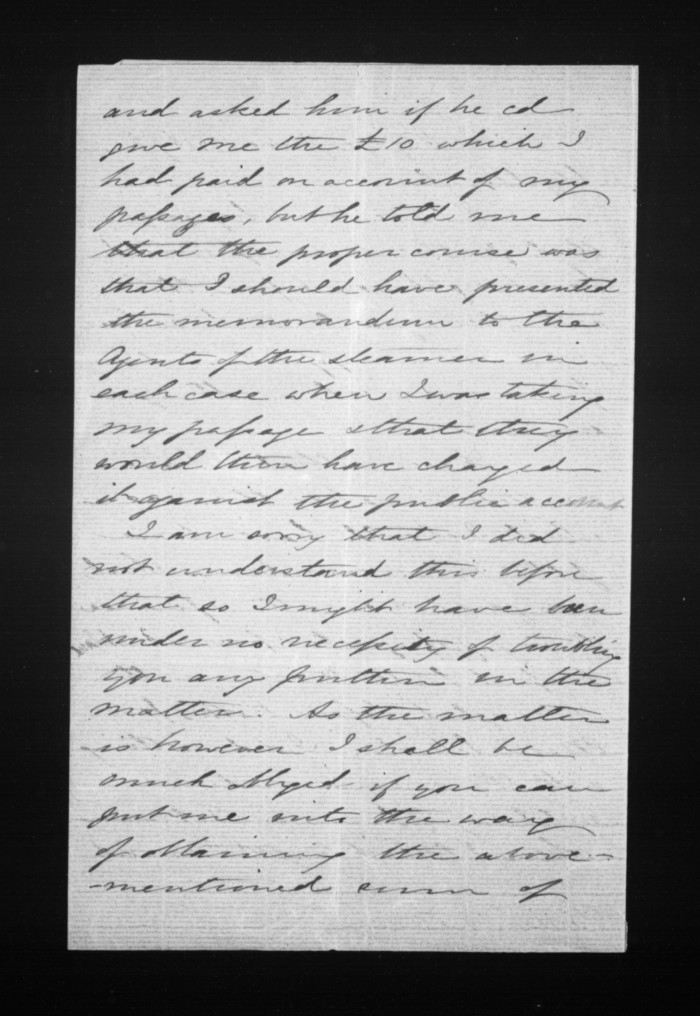 and asked him if he cd
give me the £10 which I
had paid on account of my
passages, but he told me
that the proper course was
that I should have presented
the memorandum to the
Agents of the steamer in
each case when I was taking
my passage & that they
would then have charged
it against the public account
I am sorry that I did
not understand this before
that so I might have been
under no necessity of troubling
you any further in the
matter. As the matter
is however I shall be
much obliged if you can
put me into the way
of obtaining the above-
-mentioned sum of